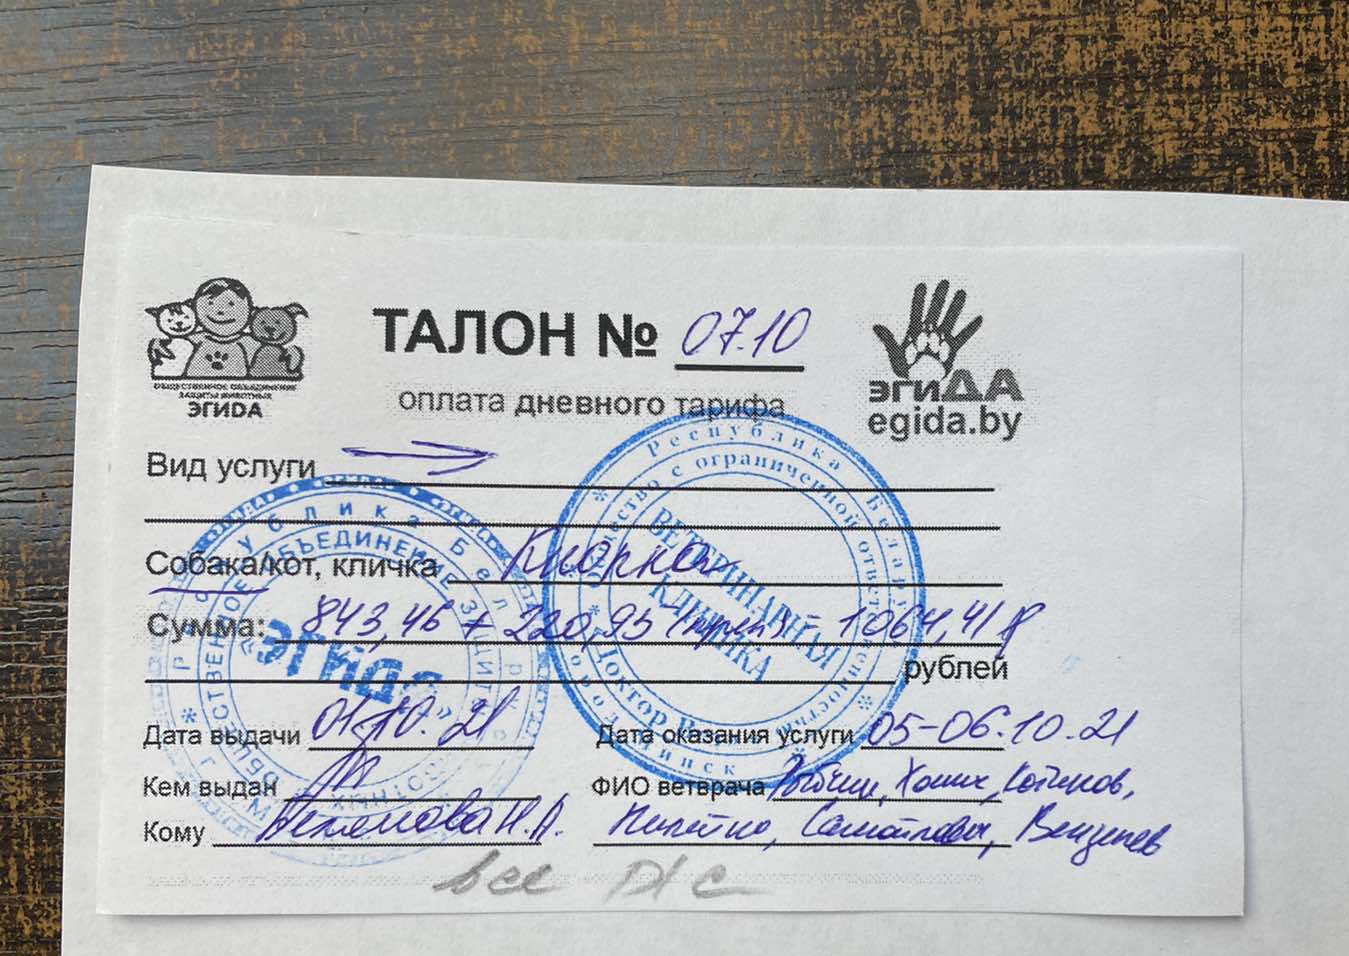 ОБЩЕСТВЕННОЕ ОБЪЕДИНЕНИЕ
ЗАЩИТЫ ЖИВОТНЫХ
ЭГИДА
ТАЛОН № 07.10
оплата дневного тарифа
эгиДА
egida.by
Вид услуги
Собака/кот, кличка Кнопка
Сумма: 843,46 + 220,95 = 1064,41 р
рублей
Дата выдачи 01.10.21
Дата оказания услуги 05-06.10.21
Кем выдан
ФИО ветврача
Кому Н.А.
все
Республика Беларусь
ОБЩЕСТВЕННОЕ ОБЪЕДИНЕНИЕ ЗАЩИТЫ
«ЭГИДА»
Республика Беларусь
Общество с ограниченной ответственностью
ВЕТЕРИНАРНАЯ
КЛИНИКА
Доктор
город Минск